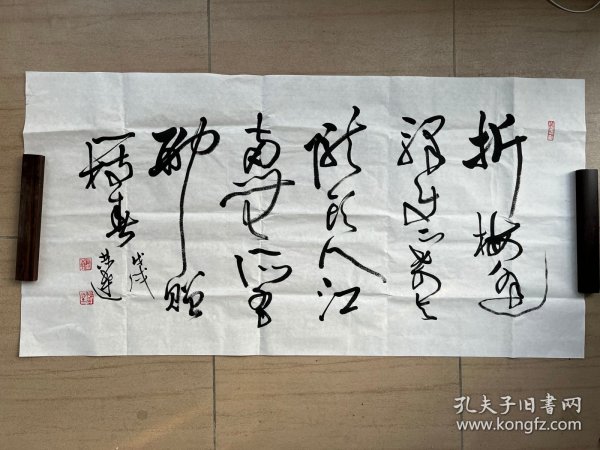 折梅逢
驛使寄与
隴頭人江
南無所有
聊贈
一枝春
戊戌
孔夫子旧書网
www.kongfz.com